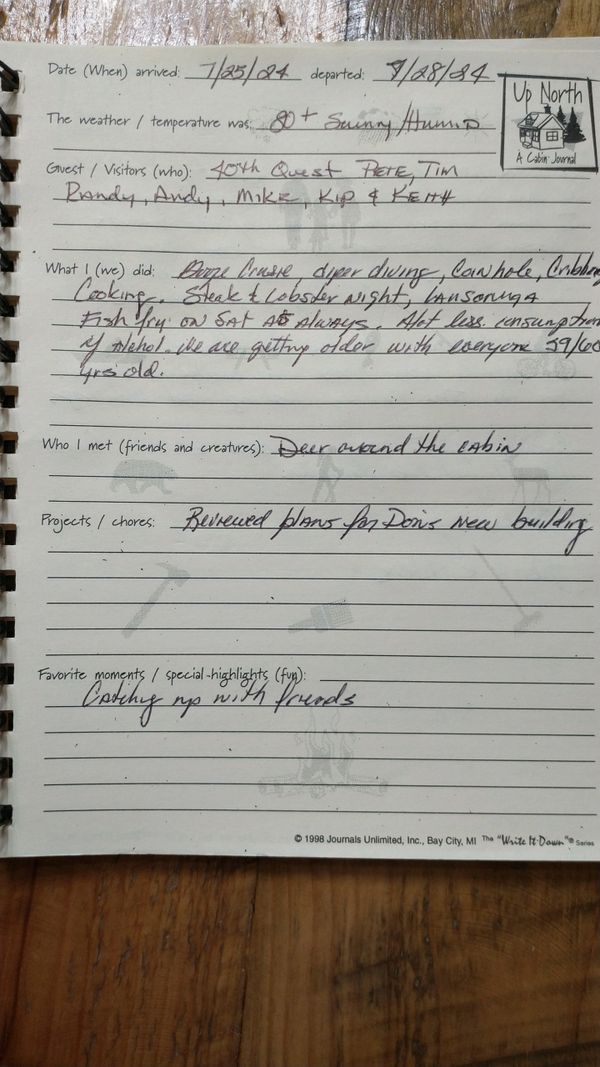 Date (When) arrived: 7/25/24 departed: 7/28/24
Up North
A Cabin Journal
The weather / temperature was: 80+ Sunny/Humid
Guest / Visitors (who): 40th Quest Pete, Tim
Randy, Andy, Mike, Kip & Keith
What I (we) did: Booze Crusie, diper diving, Cornhole, Cribbage
Cooking. Steak & Lobster Night,
Fish fry on Sat As Always. Alot less consumption
of Alchol. We are getting older with everyone 59/60
yrs old.
Who I met (friends and creatures): Deer around the cabin
Projects / chores: Reviewed plans for Don's New building
Favorite moments / special-highlights (fun):
Catching up with friends
© 1998 Journals Unlimited, Inc., Bay City, MI The "Write It Down"® Series